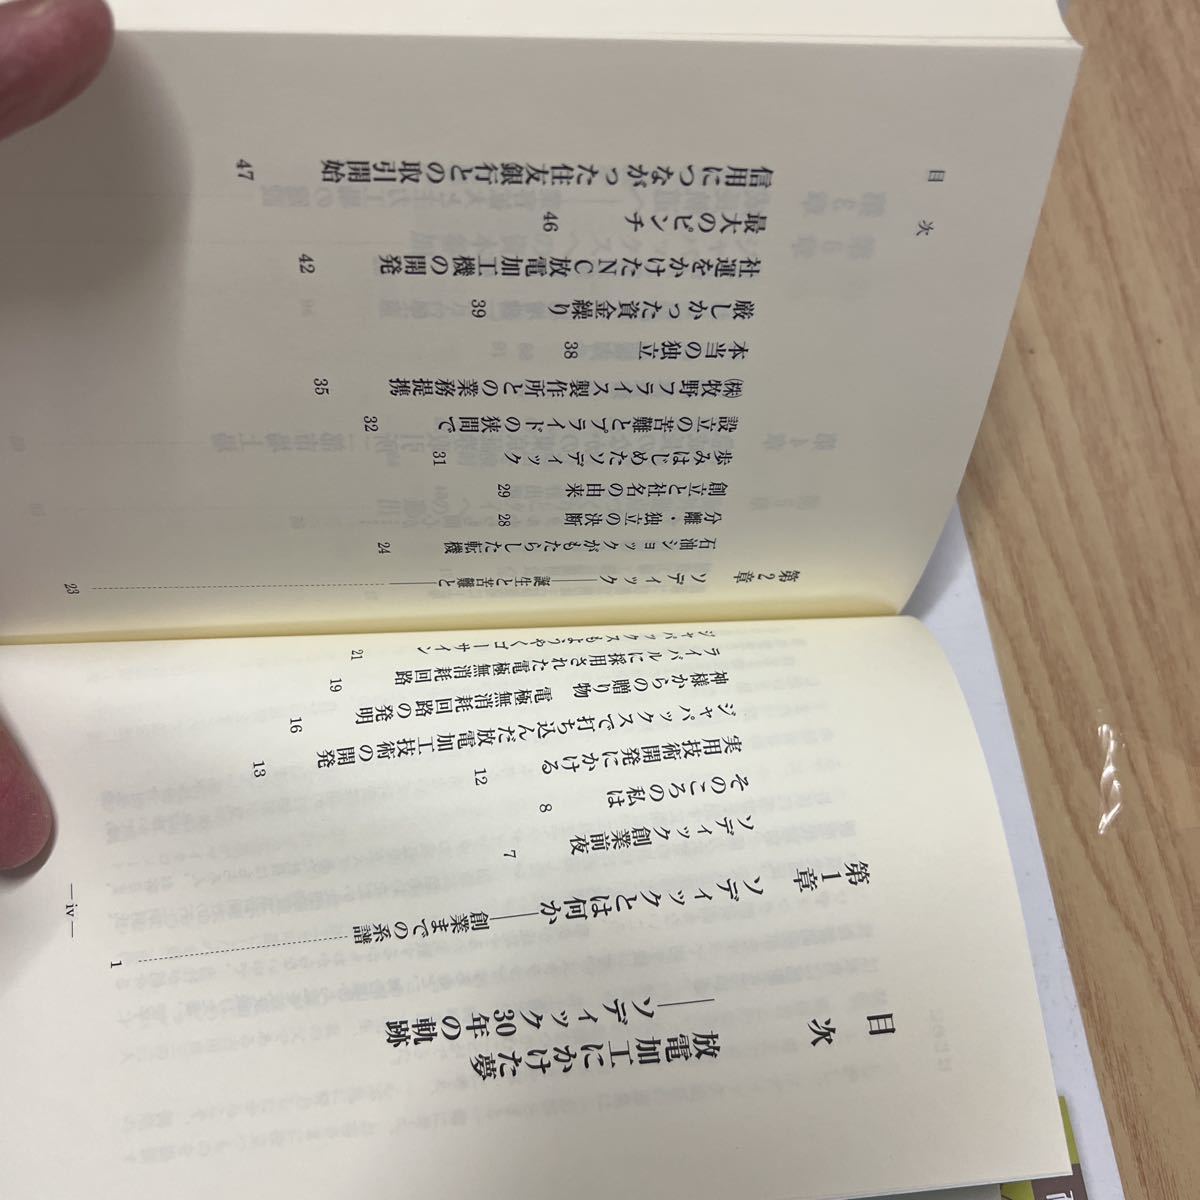 目次
放電加工にかけた夢
――ソディック30年の軌跡
第1章 ソディックとは何か――創業までの系譜 1
ソディック創業前夜 7
そのころの私は 8
実用技術開発にかける 12
ジャパックスで打ち込んだ放電加工技術の開発 13
電極無消耗回路の発明 16
神様からの贈り物 19
ライバルに採用された電極無消耗回路 21
ジャパックスもようやくゴーサイン
―iv―
第2章 ソディック――誕生と苦難と 23
石油ショックがもたらした転機 24
分離・独立の決断 28
創立と社名の由来 29
歩みはじめたソディック 31
設立の苦難とプライドの狭間で 32
㈱牧野フライス製作所との業務提携 35
本当の独立 38
厳しかった資金繰り 39
社運をかけたNC放電加工機の開発 42
最大のピンチ 46
信用につながった住友銀行との取引開始 47
目次